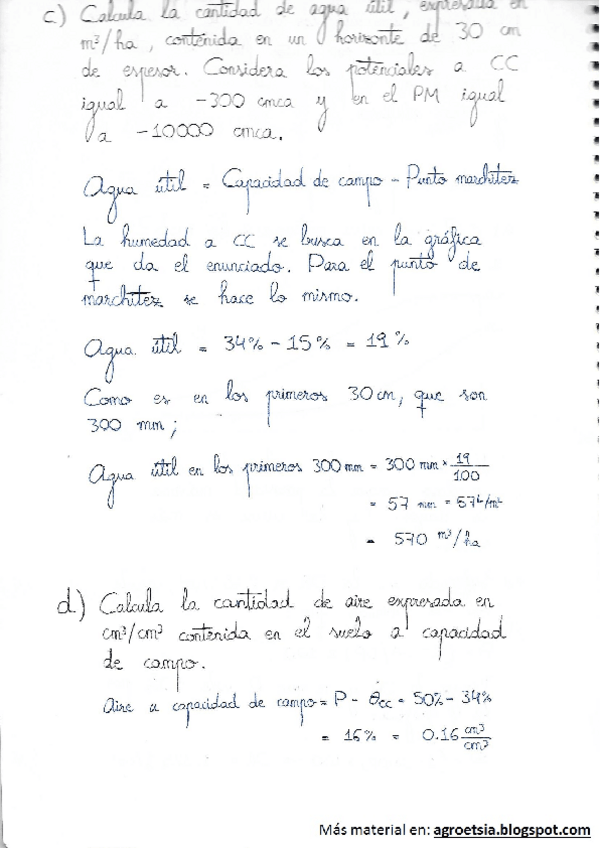 c) Calcula la cantidad de agua útil, expresada en
m³/ha, contenida en un horizonte de 30 cm
de espesor. Considera los potenciales a CC
igual a -300 cmca y en el PM igual
a -10000 cmca.
Agua útil = Capacidad de campo - Punto marchitez
La humedad a CC se busca en la gráfica
que da el enunciado. Para el punto de
marchitez se hace lo mismo.
Agua útil = 34% - 15% = 19%
Como es en los primeros 30 cm, que son
300 mm;
Agua útil en los primeros 300 mm = 300 mm × 19/100
= 57 mm = 57 L/m²
= 570 m³/ha
d.) Calcula la cantidad de aire expresada en
cm³/cm³ contenida en el suelo a capacidad
de campo.
Aire a capacidad de campo = P - θcc = 50% - 34%
= 16% = 0.16 cm³/cm³
Más material en: agroetsia.blogspot.com